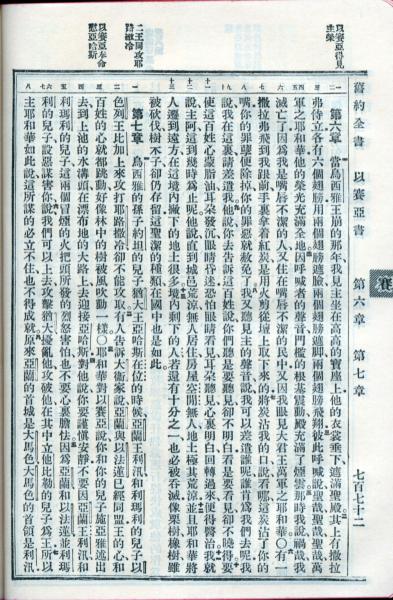 舊約全書 以賽亞書 第六章 第七章 七百七十二
賽
以賽亞得見主榮
第六章 當烏西雅王崩的那年我見主坐在高高的寶座上他的衣裳垂下遮滿聖殿其上有撒拉
弗侍立各有六個翅膀用兩個翅膀遮臉兩個翅膀遮脚兩個翅膀飛翔彼此呼喊說聖哉聖哉聖哉萬
軍之耶和華他的榮光充滿全地因呼喊者的聲音門檻的根基震動殿充滿了煙雲那時我說禍哉我
滅亡了因爲我是嘴唇不潔的人又住在嘴唇不潔的民中又因我眼見大君王萬軍之耶和華〇有一
撒拉弗飛到我跟前手裏拿着紅炭是用火剪從壇上取下來的將炭沾我的口說看哪這炭沾了你的
嘴你的罪孽便除掉你的罪惡就赦免了我又聽見主的聲音說我可以差遣誰呢誰肯爲我們去呢我
說我在這裏請差遣我他說你去告訴這百姓說你們聽是要聽見卻不明白看是要看見卻不曉得要
使這百姓心蒙脂油耳朵發沉眼睛昏迷恐怕眼睛看見耳朵聽見心裏明白回轉過來便得醫治我就
說主阿這到幾時爲止呢他說直到城邑荒涼無人居住房屋空閒無人地土極其荒涼並且耶和華將
人遷到遠方在這境內撇下的地土很多境內剩下的人若還有十分之一也必被吞滅像栗樹橡樹雖
被砍伐樹不子卻仍存留這聖潔的種類在國中也是如此
二王同攻耶路撒冷
第七章 烏西雅的孫子約坦的兒子猶大王亞哈斯在位的時候亞蘭王利汛和利瑪利的兒子以
色列王比加上來攻打耶路撒冷卻不能攻取有人告訴大衞家說亞蘭與以法蓮已經同盟王的心和
以賽亞奉命慰亞哈斯
百姓的心就都跳動好像林中的樹被風吹動一樣〇耶和華對以賽亞說你和你的兒子施亞雅述出
去到上池的水溝頭在漂布地的大路上去迎接亞哈斯對他說你要謹愼安靜不要因亞蘭王利汛和
利瑪利的兒子這兩個冒煙的火把頭所發的烈怒害怕也不要心裏膽怯因爲亞蘭和以法蓮並利瑪
利的兒子設惡謀害你說我們可以上去攻擊猶大擾亂他攻破他在其中立他比勒的兒子爲王所以
主耶和華如此說這所謀的必立不住也不得成就原來亞蘭的首城是大馬色大馬色的首領是利汛